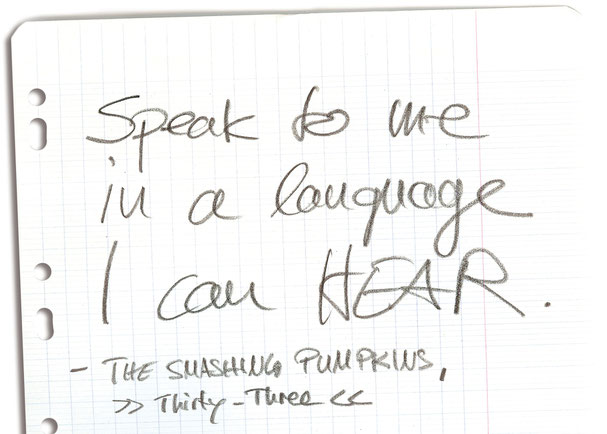 Speak to me
in a language
I can HEAR.
- THE SMASHING PUMPKINS,
>> Thirty-Three <<